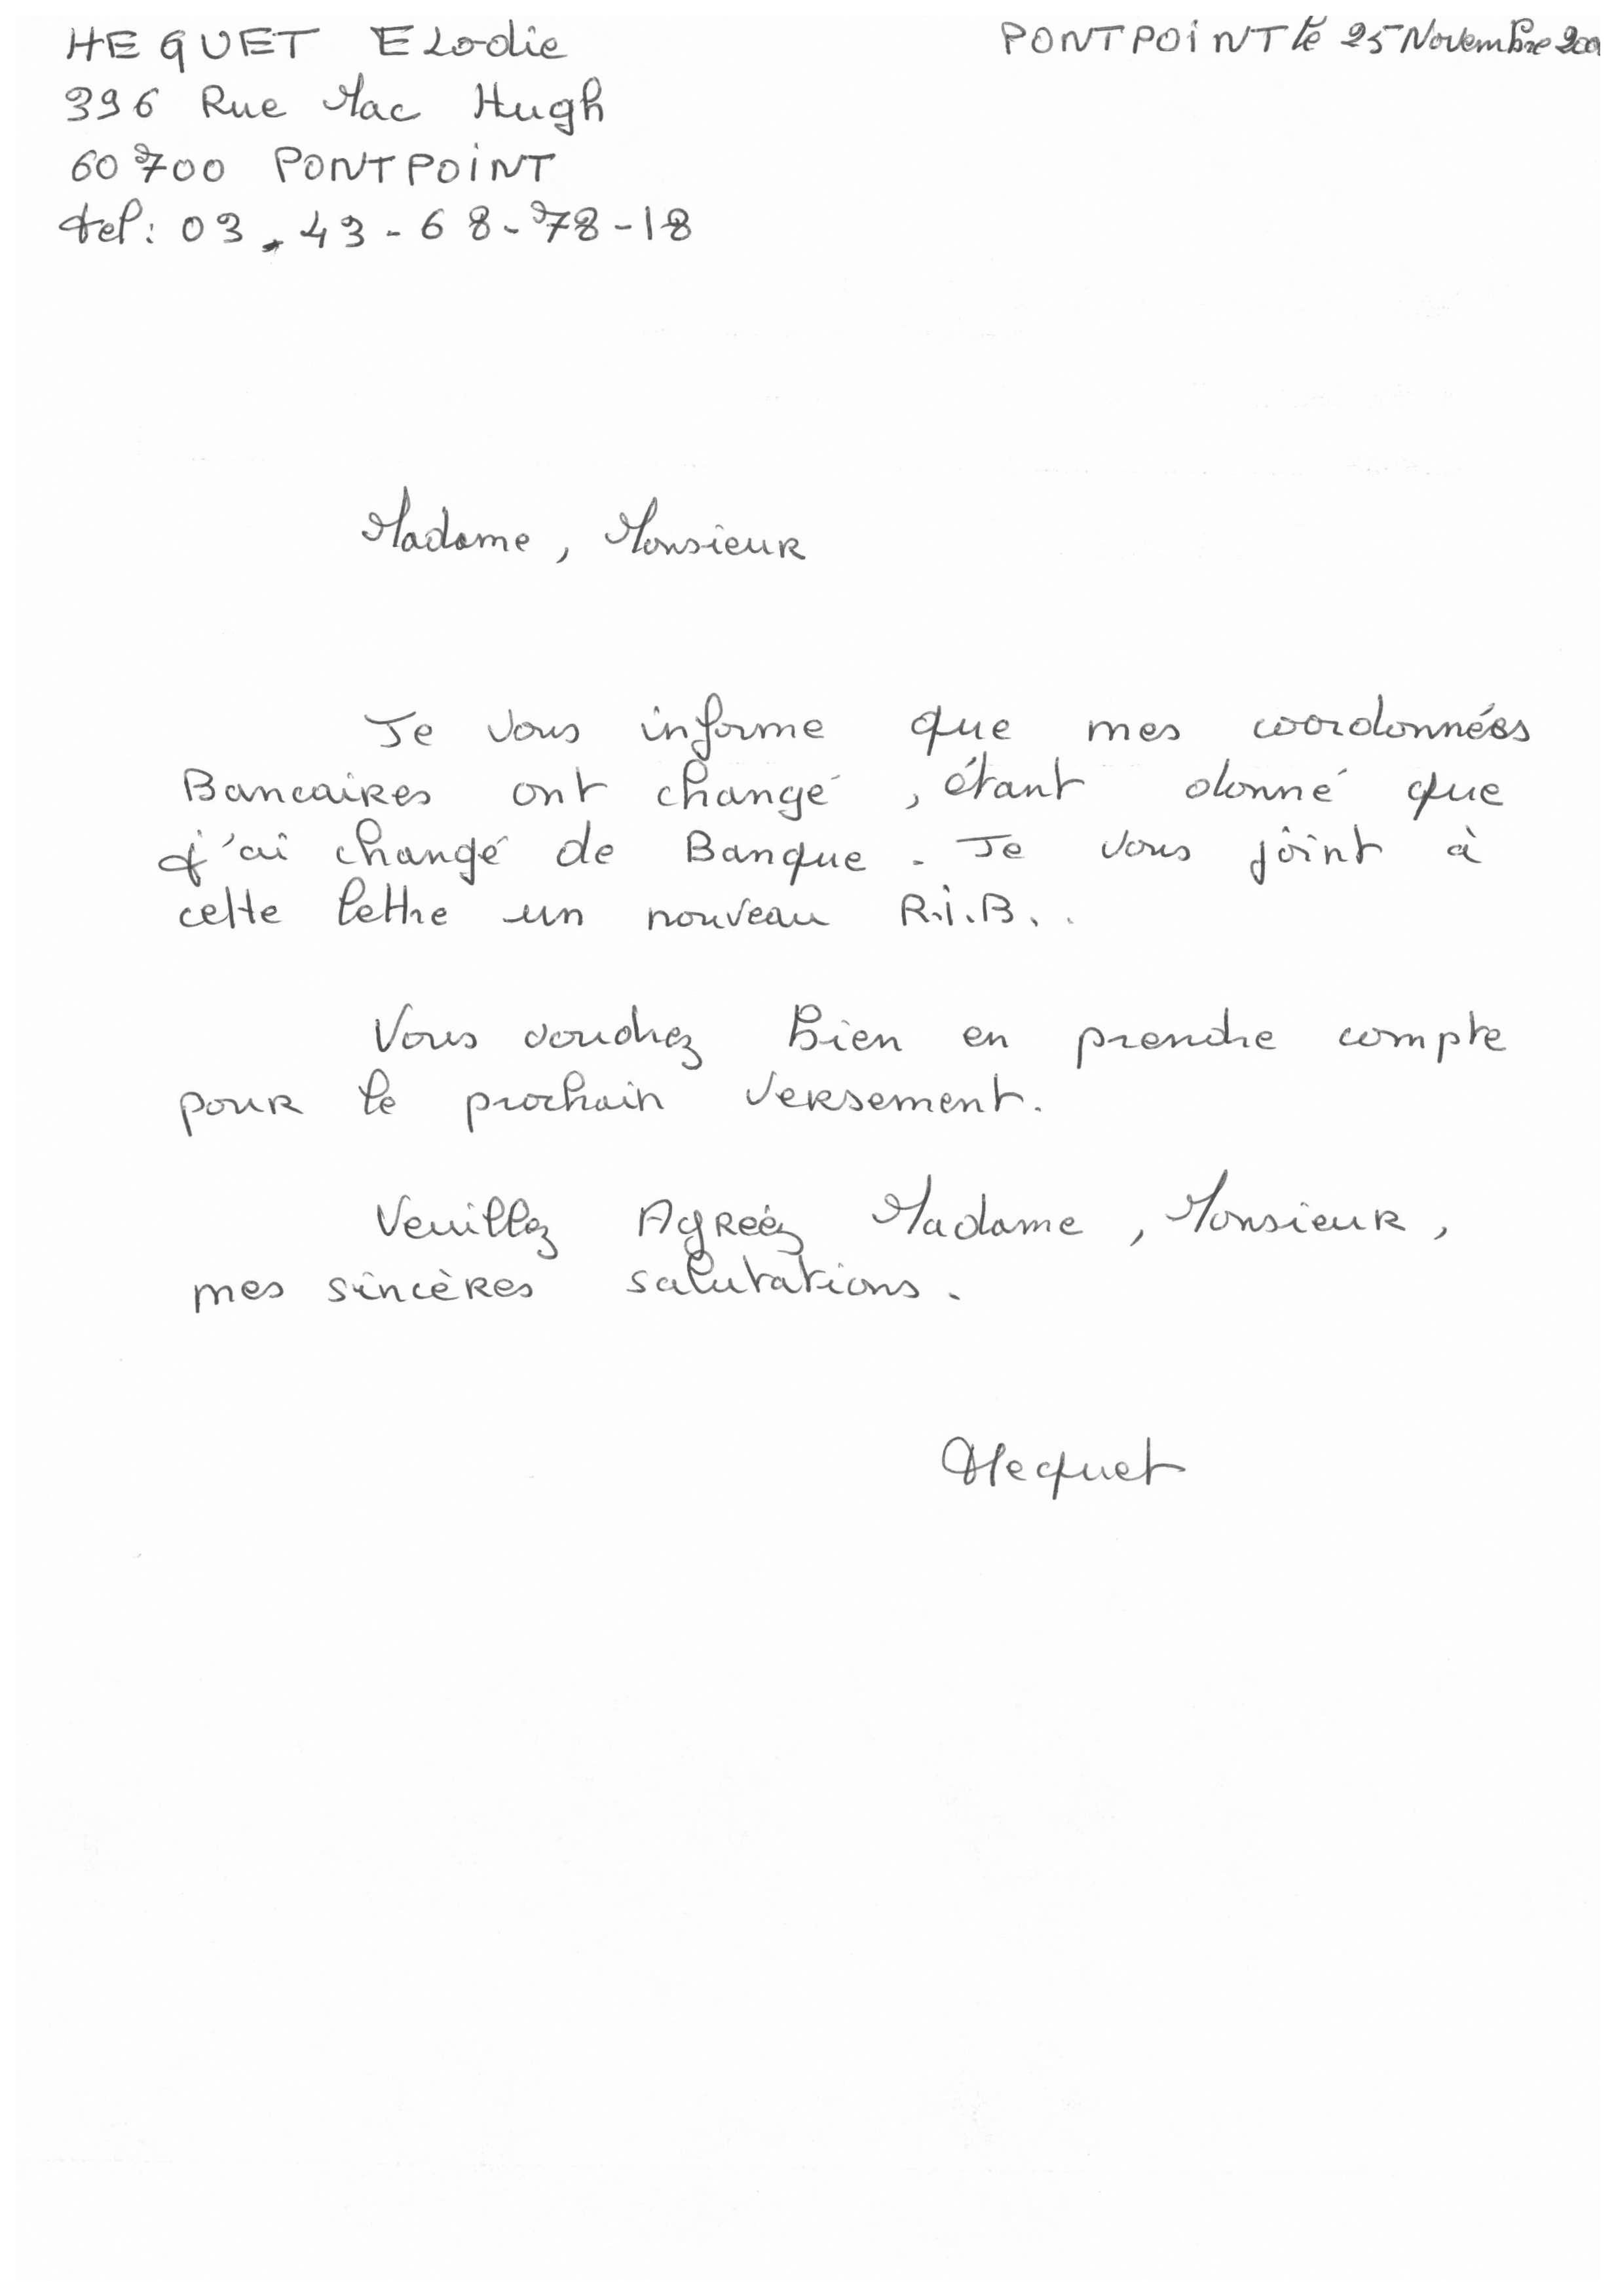 HEQUET Elodie
PONTPOiNT le 25 Novembre 200
396 Rue Mac Hugh
60700 PONTPOiNT
tel: 03.43-68-78-18
Madame, Monsieur
Je vous informe que mes coordonnées
Bancaires ont changé, étant donné que
j'ai changé de Banque. Je vous joint à
cette lettre un nouveau R.i.B..
Vous voudrez Bien en prendre compte
pour le prochain versement.
Veuillez Agréez Madame, Monsieur,
mes sincères salutations.
Hequet